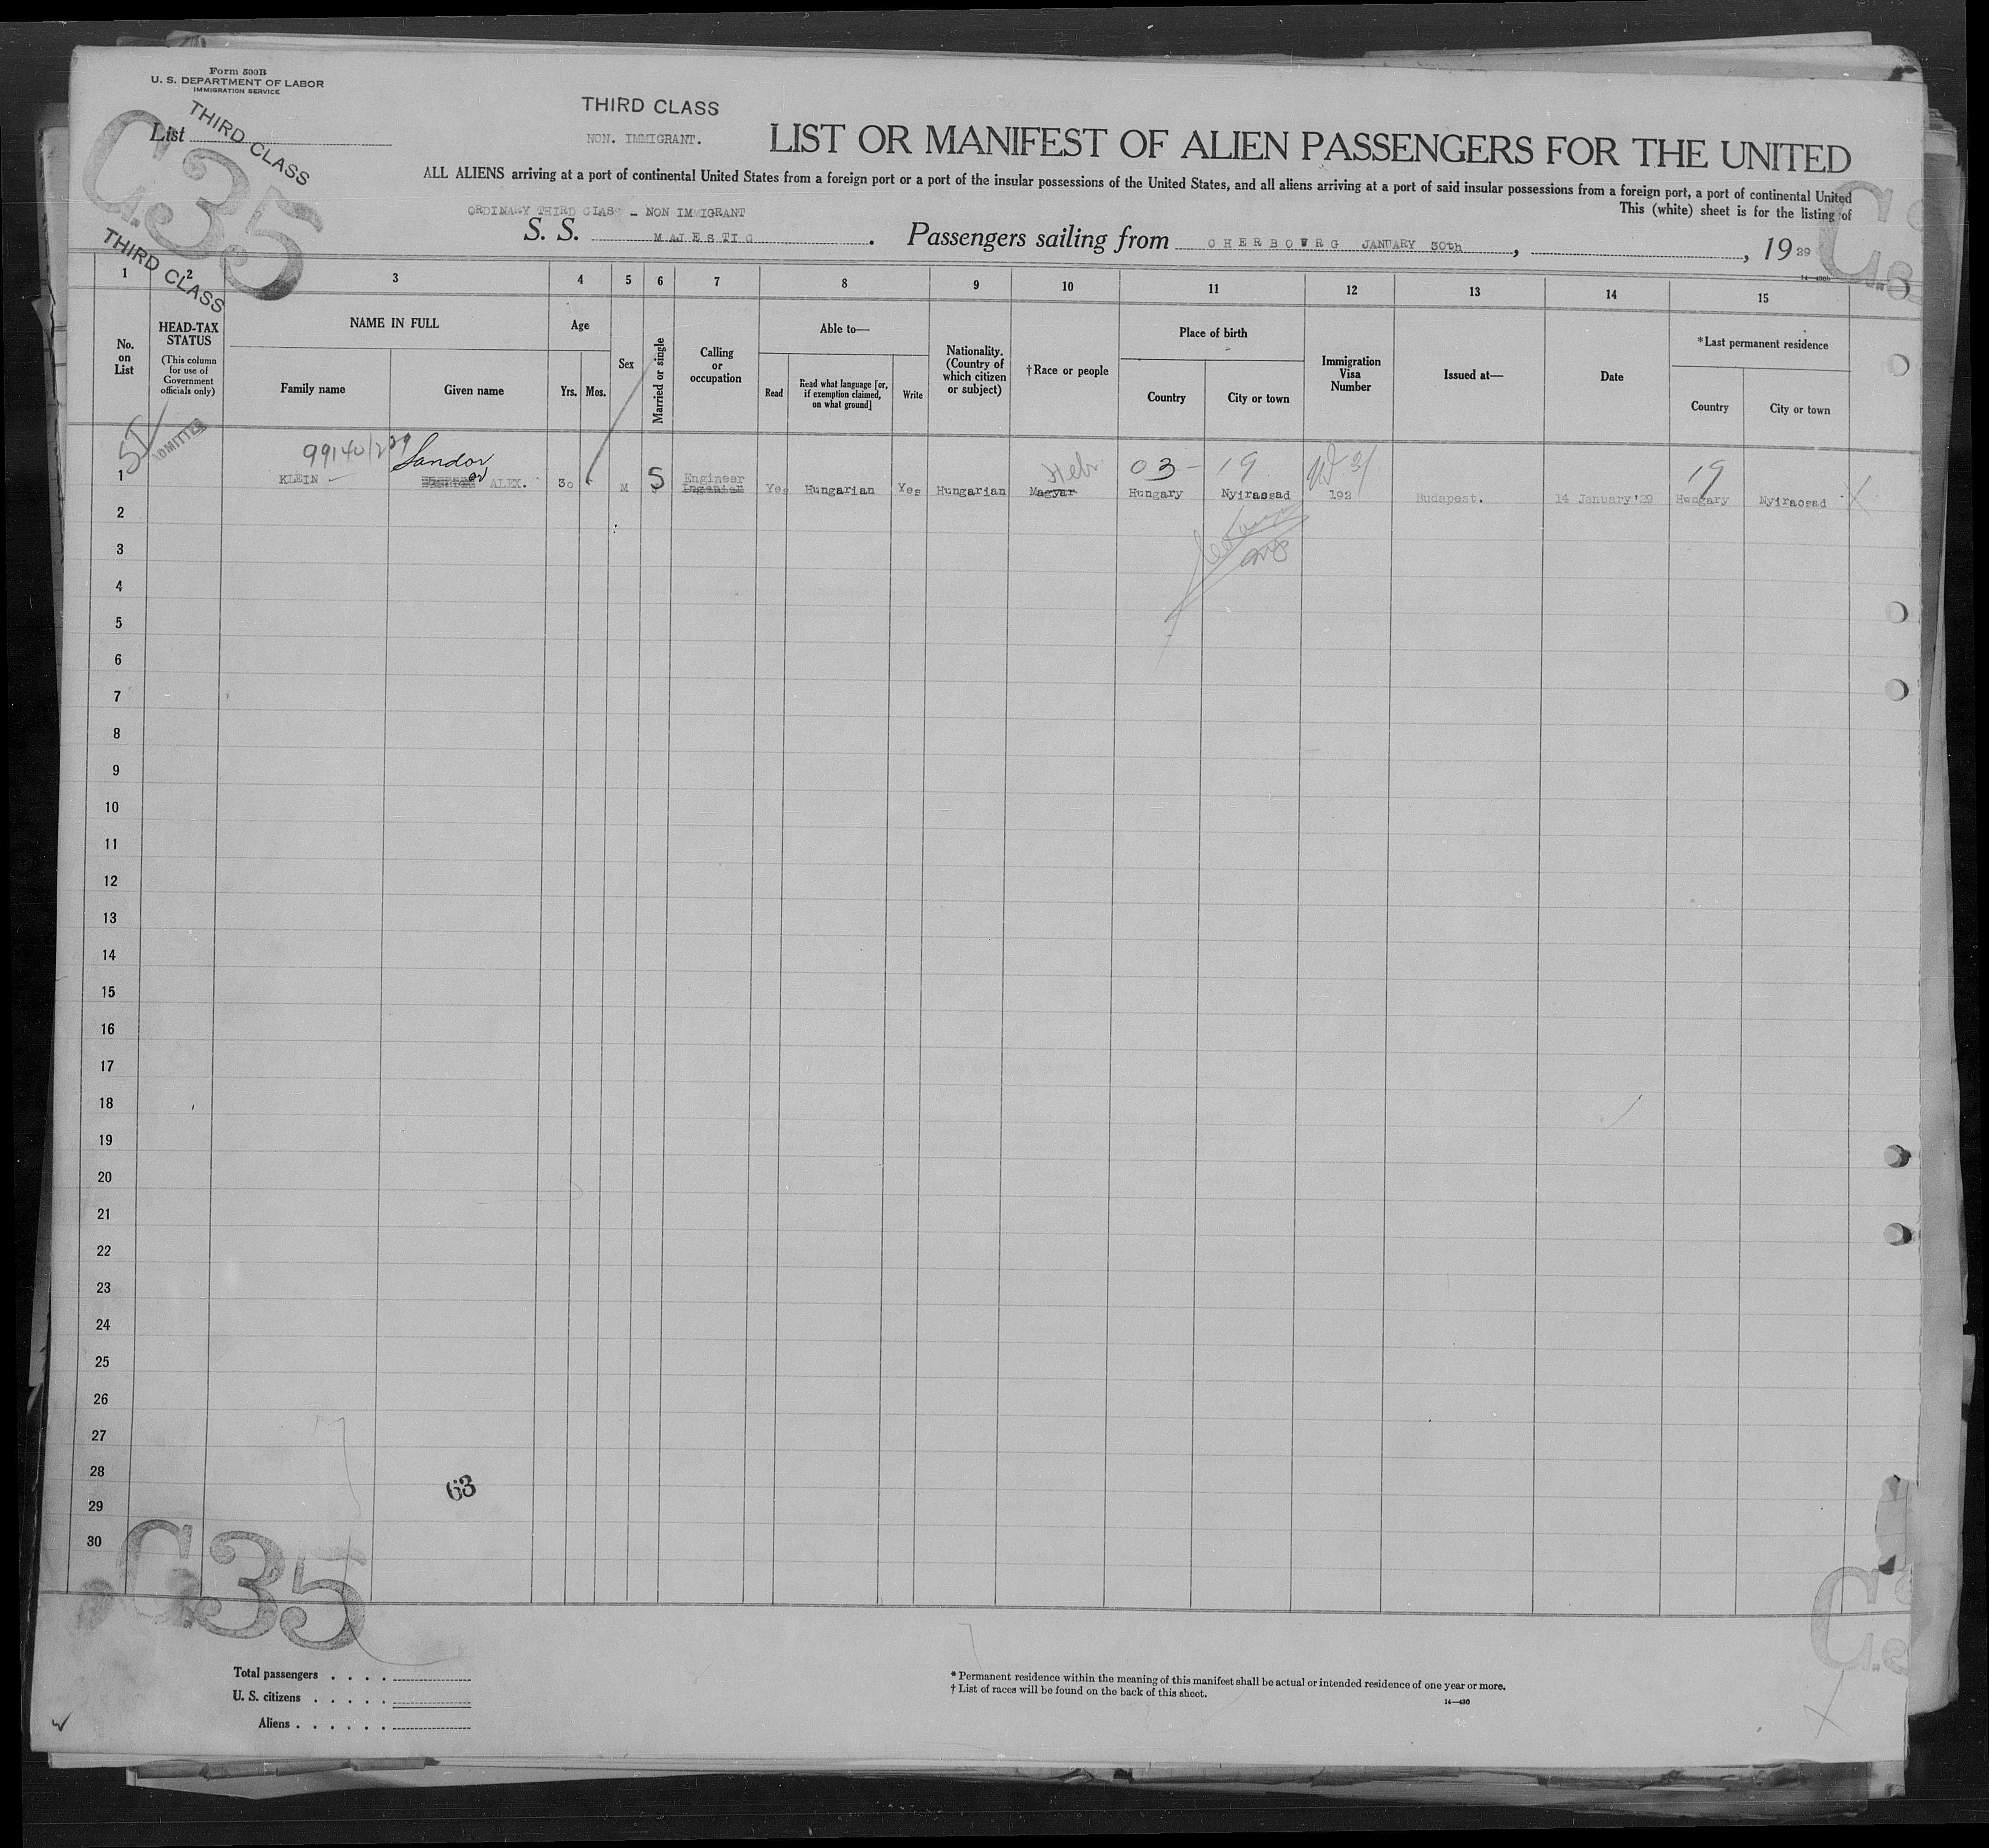 Form 500B
U. S. DEPARTMENT OF LABOR
IMMIGRATION SERVICE
List
THIRD CLASS
C.35
THIRD CLASS
THIRD CLASS
NON. IMMIGRANT.
LIST OR MANIFEST OF ALIEN PASSENGERS FOR THE UNITED
ALL ALIENS arriving at a port of continental United States from a foreign port or a port of the insular possessions of the United States, and all aliens arriving at a port of said insular possessions from a foreign port, a port of continental United
This (white) sheet is for the listing of
ORDINARY THIRD CLASS - NON IMMIGRANT
S. S. MAJESTIC. Passengers sailing from CHERBOURG JANUARY 30th, , 1929
14-430b
1 2 3 4 5 6 7 8 9 10 11 12 13 14 15
No. on List
HEAD-TAX STATUS
(This column for use of Government officials only)
NAME IN FULL
Family name
Given name
Age
Yrs. Mos.
Sex
Married or single
Calling or occupation
Able to—
Read
Read what language [or, if exemption claimed, on what ground]
Write
Nationality. (Country of which citizen or subject)
†Race or people
Place of birth
Country
City or town
Immigration Visa Number
Issued at—
Date
*Last permanent residence
Country
City or town
SI
ADMITTED
Sandor
Hebr
03 - 19
19
Engineer
1 KLEIN or ALEX. 30 M S Ingenier Yes Hungarian Yes Hungarian Magyar Hungary Nyiracsad 192 Budapest. 14 January '29 Hungary Nyiracsad X
2
3
4
5
6
7
8
9
10
11
12
13
14
15
16
17
18
19
20
21
22
23
24
25
26
27
28
63
29
30
C.35
Total passengers . . . .
U. S. citizens . . . . .
Aliens . . . . . .
* Permanent residence within the meaning of this manifest shall be actual or intended residence of one year or more.
† List of races will be found on the back of this sheet.
14—430